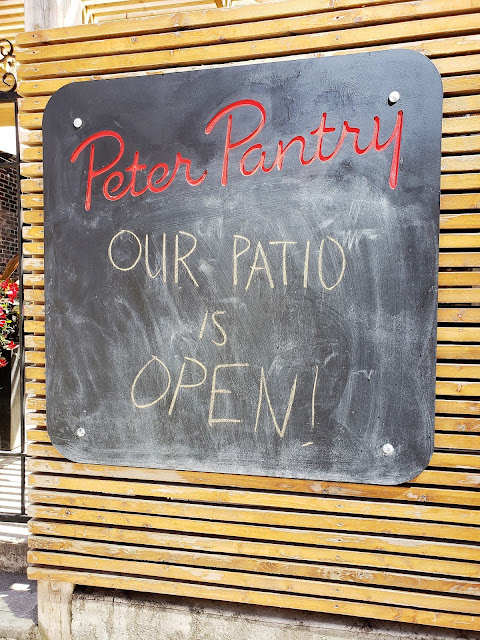 Peter Pantry
OUR PATIO
iS
OPEN!